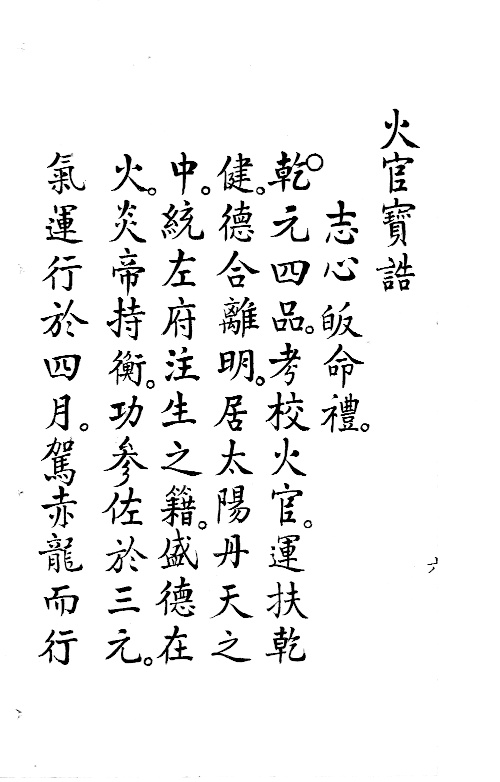 火官寶誥
志心皈命禮。
乾元四品。考校火官。運扶乾
健。德合離明。居太陽丹天之
中。統左府注生之籍。盛德在
火。炎帝持衡。功參佐於三元。
氣運行於四月。駕赤龍而行